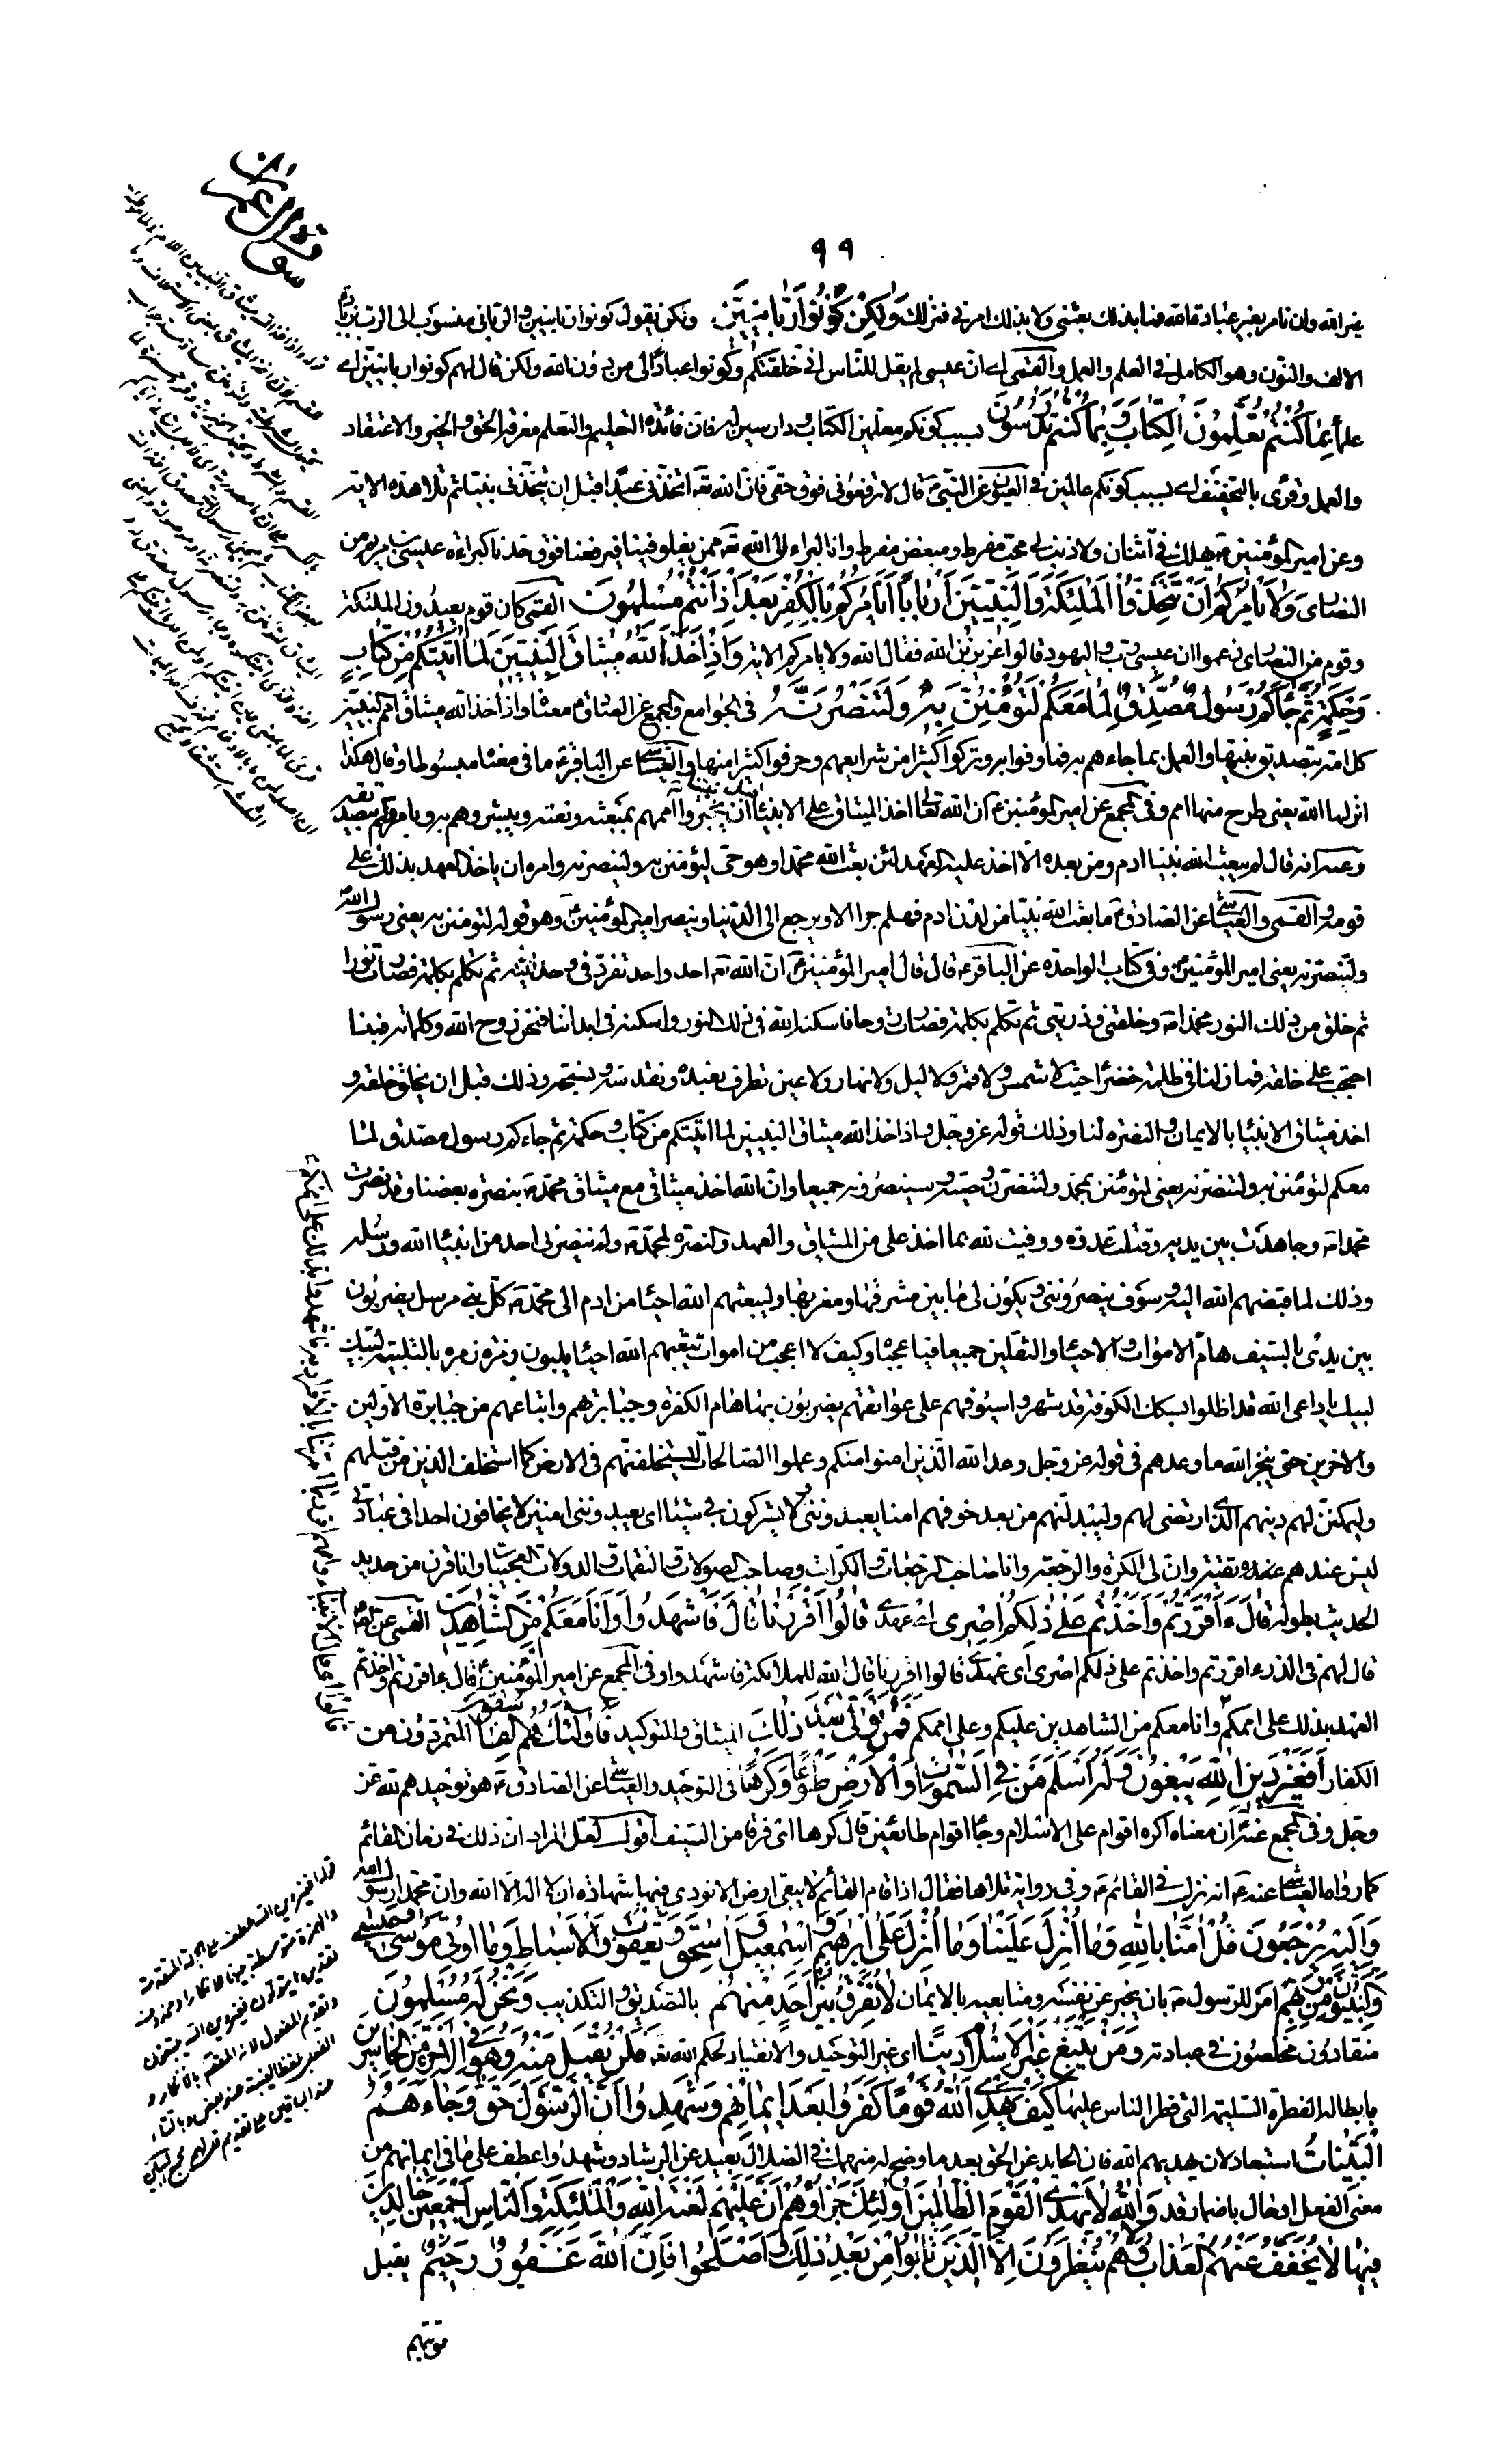 سورة آل عمران
٩٩
غير الله وان نامر بغير عبادة الله فما بذلك بعثني ولا بذلك امرني فنزلت وَلٰكِنْ كُونُوا رَبّٰانِيّٖنَ ولكن يقول كونوا ربانيين والرباني منسوب الى الرب بزيادة
الالف والنون وهو الكامل في العلم والعمل والقمي اي ان عيسى لم يقل للناس اني خلقتكم وكونوا عبادا لي من دون الله ولكن قال لهم كونوا ربانيين اي
علماء بِمٰا كُنْتُمْ تُعَلِّمُونَ الْكِتٰابَ وَبِمٰا كُنْتُمْ تَدْرُسُونَ بسبب كونكم معلمين الكتاب ودارسين له فان فائدة التعليم والتعلم معرفة الحق والخير والاعتقاد
والعمل وقرئ بالتخفيف اي بسبب كونكم عالمين في العيون عن النبي ص قال لا ترفعوني فوق حقي فان الله تعه اتخذني عبدا قبل ان يتخذني نبيا ثم تلا هذه الاية
وعن امير المؤمنين ع يهلك في اثنان ولا ذنب لي محب مفرط ومبغض مفرط وانا لبراء الى الله تعه ممن يغلو فينا فيرفعنا فوق حدنا كبراءة عيسى بن مريم من
النصارى وَلٰا يَأْمُرَكُمْ اَنْ تَتَّخِذُوا الْمَلٰئِكَةَ وَالنَّبِيّٖنَ اَرْبٰاباً اَيَأْمُرُكُمْ بِالْكُفْرِ بَعْدَ اِذْ اَنْتُمْ مُسْلِمُونَ القمي كان قوم يعبدون الملئكة
وقوم من النصارى زعموا ان عيسى رب واليهود قالوا عزير بن الله فقال الله ولا يامركم الاية وَاِذْ اَخَذَ اللهُ مِيثٰاقَ النَّبِيّٖنَ لَمٰا اٰتَيْتُكُمْ مِنْ كِتٰابٍ
وَحِكْمَةٍ ثُمَّ جٰاءَكُمْ رَسُولٌ مُصَدِّقٌ لِمٰا مَعَكُمْ لَتُؤْمِنُنَّ بِهٖ وَلَتَنْصُرُنَّهُ في الجوامع والمجمع عن الصادق ع معناه واذ اخذ الله ميثاق امم النبيين
كل امة بتصديق نبيها والعمل بما جاءهم به فما وفوا به وتركوا كثيرا من شرايعهم وحرفوا كثيرا منها والعياشي عن الباقر ع ما في معناه مبسوطا وقال هكذا
انزلها الله يعني طرح منها امم وفي المجمع عن امير المؤمنين ع ان الله تعالى اخذ الميثاق على الانبياء قبل نبينا ان يخبروا اممهم بمبعثه ونعته ويبشروهم به ويامروهم بتصديقه
وعنه انه قال لم يبعث الله نبيا ادم ومن بعده الا اخذ عليه العهد لئن بعث الله محمدا وهو حي ليؤمنن به ولينصرنه وامره ان ياخذ العهد بذلك على
قومه والقمي والعياشي عن الصادق ع ما بعث الله نبيا من لدن ادم فهلم جرا الا ويرجع الى الدنيا وينصر امير المؤمنين ع وهو قوله لتومنن به يعني رسول الله
ولتنصرنه يعني امير المؤمنين ع وفي كتاب الواحده عن الباقر ع قال قال امير المؤمنين ع ان الله تعه احد واحد تفرد في وحدانيته ثم تكلم بكلمة فصارت نورا
ثم خلق من ذلك النور محمدا ص وخلقني وذريتي ثم تكلم بكلمة فصارت روحا فاسكنه الله في ذلك النور واسكنه في ابداننا فنحن روح الله وكلماته فبنا
احتجب على خلقه فما زلنا في ظلمة خضراء حيث لا شمس ولا قمر ولا ليل ولا نهار ولا عين تطرف نعبده ونقدسه ونسبحه وذلك قبل ان يخلق خلقه و
اخذ ميثاق الانبياء بالايمان والنصره لنا وذلك قوله عز وجل واذ اخذ الله ميثاق النبيين لما اتيتكم من كتاب وحكمة ثم جاءكم رسول مصدق لما
معكم لتؤمنن به ولتنصرنه يعني لتؤمنن بمحمد ولتنصرن وصيه وسينصرونه جميعا وان الله اخذ ميثاقي مع ميثاق محمد ص بنصره بعضنا وقد نصرت
محمدا ص وجاهدت بين يديه وقتلت عدوه ووفيت لله بما اخذ علي من الميثاق والعهد والنصره لمحمد ص ولم ينصرني احد من انبياء الله ورسله
وذلك لما قبضهم الله اليه وسوف ينصرونني ويكون لي ما بين مشرقها ومغربها وليبعثهم الله احياء من ادم الى محمد ص كل نبي مرسل يضربون
بين يدي بالسيف هام الاموات والاحياء والثقلين جميعا فيا عجباه وكيف لا اعجب من اموات يبعثهم الله احياء يلبون زمره زمره بالتلبيه لبيك
لبيك يا داعي الله قد اظلوا بسكك الكوفة قد شهروا سيوفهم على عواتقهم يضربون بها هام الكفره وجبابرتهم واتباعهم من جبابرة الاولين
والاخرين حتى ينجز الله ما وعدهم في قوله عز وجل وعد الله الذين امنوا منكم وعملوا الصالحات ليستخلفنهم في الارض كما استخلف الذين من قبلهم
وليمكنن لهم دينهم الذي ارتضى لهم وليبدلنهم من بعد خوفهم امنا يعبدونني لا يشركون بي شيئا اي يعبدونني امنين لا يخافون احدا في عبادتي
ليس عندهم تقية وان لي الكرة والرجعة وانا صاحب الرجعات والكرات وصاحب الصولات والنقمات والدولات العجيبات وانا قرن من حديد
الحديث بطوله قٰالَ ءَاَقْرَرْتُمْ وَاَخَذْتُمْ عَلىٰ ذٰلِكُمْ اِصْرِى اي عهدي قٰالُوا اَقْرَرْنٰا قٰالَ فَاشْهَدُوا وَاَنَا مَعَكُمْ مِنَ الشّٰاهِدِينَ القمي عن الصادق ع
قال لهم في الذر ءاقررتم واخذتم على ذلكم اصري اي عهدي قالوا اقررنا قال الله للملائكة فاشهدوا وفي المجمع عن امير المؤمنين ع قال ءاقررتم واخذتم
العهد بذلك على اممكم وانا معكم من الشاهدين عليكم وعلى اممكم فَمَنْ تَوَلّىٰ بَعْدَ ذٰلِكَ الميثاق والتوكيد فَاُولٰئِكَ هُمُ الْفٰاسِقُونَ المتمردون من
الكفار اَفَغَيْرَ دِينِ اللهِ يَبْغُونَ وَلَهُ اَسْلَمَ مَنْ فِي السَّمٰوٰاتِ وَالْاَرْضِ طَوْعاً وَكَرْهاً في التوحيد والعياشي عن الصادق ع هو توحيدهم لله عز
وجل وفي المجمع عنه ع ان معناه اكره اقوام على الاسلام وجاء اقوام طائعين قال كرها اي فرقا من السيف اقول لعل المراد ان ذلك في زمان القائم
كما رواه العياشي عنه ع انه نزلت في القائم ع وفي رواية تلاها فقال اذا قام القائم لا يبقى ارض الا نودي فيها شهادة ان لا اله الا الله وان محمدا رسول الله
وَاِلَيْهِ يُرْجَعُونَ قُلْ اٰمَنّٰا بِاللهِ وَمٰا اُنْزِلَ عَلَيْنٰا وَمٰا اُنْزِلَ عَلىٰ اِبْرٰهِيمَ وَاِسْمٰعِيلَ وَاِسْحٰقَ وَيَعْقُوبَ وَالْاَسْبٰاطِ وَمٰا اُوتِيَ مُوسىٰ وَعِيسىٰ
وَالنَّبِيُّونَ مِنْ رَبِّهِمْ امر للرسول ص بان يخبر عن نفسه ومتابعيه بالايمان لٰا نُفَرِّقُ بَيْنَ اَحَدٍ مِنْهُمْ بالتصديق والتكذيب وَنَحْنُ لَهُ مُسْلِمُونَ
منقادون مخلصون في عبادته وَمَنْ يَبْتَغِ غَيْرَ الْاِسْلٰامِ دِيناً اي غير التوحيد والانقياد لحكم الله تعه فَلَنْ يُقْبَلَ مِنْهُ وَهُوَ فِي الْاٰخِرَةِ مِنَ الْخٰاسِرِينَ
بابطاله الفطرة السليمة التي فطر الناس عليها كَيْفَ يَهْدِي اللهُ قَوْماً كَفَرُوا بَعْدَ اِيمٰانِهِمْ وَشَهِدُوا اَنَّ الرَّسُولَ حَقٌّ وَجٰاءَهُمُ
الْبَيِّنٰاتُ استبعاد لان يهديهم الله فان الحايد عن الحق بعد ما وضح له منهمك في الضلال بعيد عن الرشاد وشهدوا عطف على ما في ايمانهم من
معنى الفعل او حال باضمار قد وَاللهُ لٰا يَهْدِي الْقَوْمَ الظّٰالِمِينَ اُولٰئِكَ جَزٰاؤُهُمْ اَنَّ عَلَيْهِمْ لَعْنَةَ اللهِ وَالْمَلٰئِكَةِ وَالنّٰاسِ اَجْمَعِينَ خٰالِدِينَ
فِيهٰا لٰا يُخَفَّفُ عَنْهُمُ الْعَذٰابُ وَلٰا هُمْ يُنْظَرُونَ اِلَّا الَّذِينَ تٰابُوا مِنْ بَعْدِ ذٰلِكَ وَاَصْلَحُوا فَاِنَّ اللهَ غَفُورٌ رَحِيمٌ يقبل
توبتهم